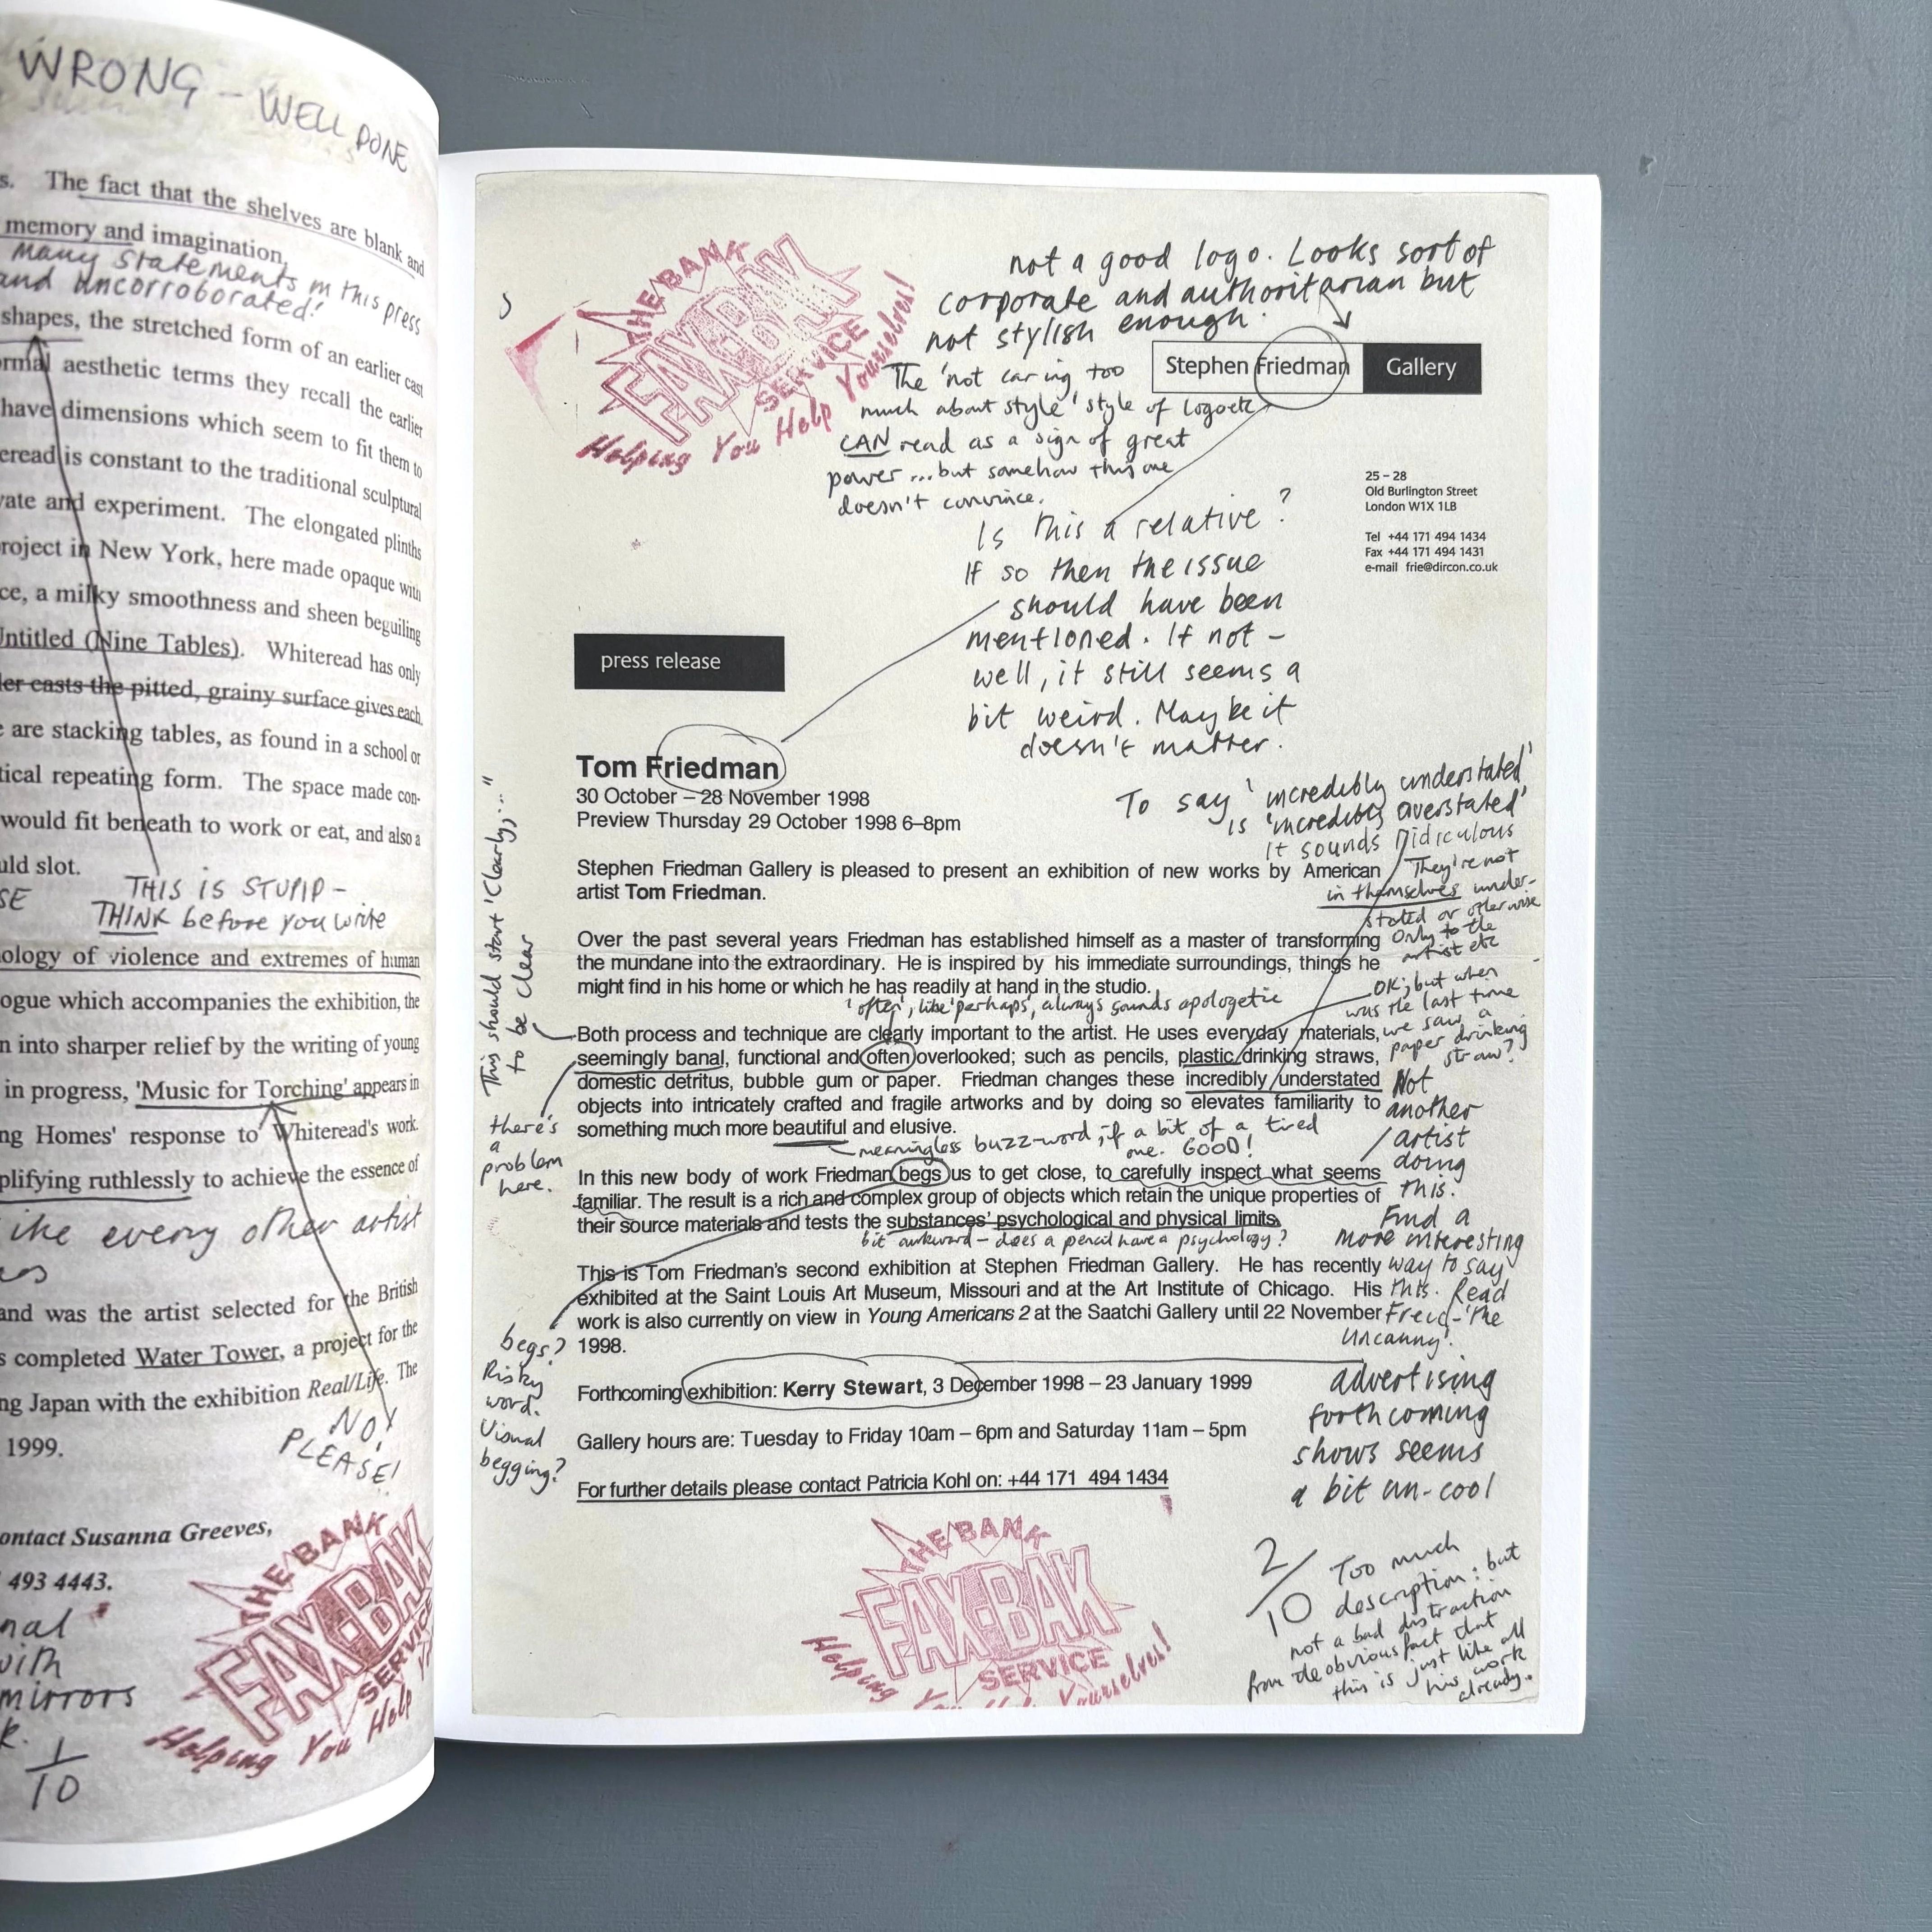 WRONG – WELL DONE
s. The fact that the shelves are blank and
memory and imagination,
Many statements in this press
and uncorroborated!
shapes, the stretched form of an earlier cast
aesthetic terms they recall the earlier
have dimensions which seem to fit them to
is constant to the traditional sculptural
and experiment. The elongated plinths
in New York, here made opaque with
ce, a milky smoothness and sheen beguiling
Untitled (Nine Tables). Whiteread has only
casts the pitted, grainy surface gives each
are stacking tables, as found in a school or
tical repeating form. The space made con-
would fit beneath to work or eat, and also a
uld slot.
SE
THIS IS STUPID –
THINK before you write
ology of violence and extremes of human
ogue which accompanies the exhibition, the
n into sharper relief by the writing of young
in progress, 'Music for Torching' appears in
ng Homes' response to Whiteread's work.
plifying ruthlessly to achieve the essence of
like every other artist
and was the artist selected for the British
s completed Water Tower, a project for the
ng Japan with the exhibition Real/Life. The
1999.
NO!
PLEASE!
ontact Susanna Greeves,
493 4443.
nal
with
mirrors
k.
1/10
THE BANK
FAX-BAK
SERVICE
Helping You Help
THE BANK
FAX-BAK
SERVICE
Helping You Help Yourselves!
not a good logo. Looks sort of
corporate and authoritarian but
not stylish enough.
Stephen Friedman Gallery
The 'not caring too
much about style' style of logo etc
CAN read as a sign of great
power ... but somehow this one
doesn't convince.
25 – 28
Old Burlington Street
London W1X 1LB
Tel +44 171 494 1434
Fax +44 171 494 1431
e-mail frie@dircon.co.uk
Is this a relative?
If so then the issue
should have been
mentioned. If not –
well, it still seems a
bit weird. Maybe it
doesn't matter.
press release
Tom Friedman
30 October – 28 November 1998
Preview Thursday 29 October 1998 6–8pm
To say 'incredibly understated'
is 'incredibly overstated'
It sounds ridiculous
They're not
in themselves under-
stated or otherwise
Only to the
artist etc
Stephen Friedman Gallery is pleased to present an exhibition of new works by American
artist Tom Friedman.
Over the past several years Friedman has established himself as a master of transforming
the mundane into the extraordinary. He is inspired by his immediate surroundings, things he
might find in his home or which he has readily at hand in the studio.
'often', like 'perhaps', always sounds apologetic
OK; but when
was the last time
we saw a
paper drinking
straw?
This should start 'Clearly,..."
to be clear
Both process and technique are clearly important to the artist. He uses everyday materials,
seemingly banal, functional and often overlooked; such as pencils, plastic drinking straws,
domestic detritus, bubble gum or paper. Friedman changes these incredibly understated
objects into intricately crafted and fragile artworks and by doing so elevates familiarity to
something much more beautiful and elusive.
meaningless buzz-word, if a bit of a tired
one. GOOD!
there's
a
problem
here.
Not
another
artist
doing
this.
Find a
more interesting
way to say
this. Read
Freud – 'The
Uncanny'.
In this new body of work Friedman begs us to get close, to carefully inspect what seems
familiar. The result is a rich and complex group of objects which retain the unique properties of
their source materials and tests the substances' psychological and physical limits.
bit awkward – does a pencil have a psychology?
This is Tom Friedman's second exhibition at Stephen Friedman Gallery. He has recently
exhibited at the Saint Louis Art Museum, Missouri and at the Art Institute of Chicago. His
work is also currently on view in Young Americans 2 at the Saatchi Gallery until 22 November
1998.
begs?
Risky
word.
Visual
begging?
Forthcoming exhibition: Kerry Stewart, 3 December 1998 – 23 January 1999
advertising
forthcoming
shows seems
a bit un-cool
Gallery hours are: Tuesday to Friday 10am – 6pm and Saturday 11am – 5pm
For further details please contact Patricia Kohl on: +44 171 494 1434
2/10
Too much
description: but
not a bad distraction
from the obvious fact that
this is just like all
his work
already.
THE BANK
FAX-BAK
SERVICE
Helping You Help Yourselves!